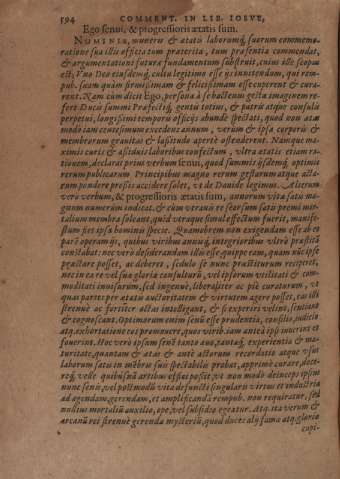 594 COMMENT. IN LIB. IOSVE,
Ego senui, & progressioni ætatis sum.
NVMINIS, muneris & ætatis laborumq́, suorum commemo-
ratione sua illis officia tum præterita, tum præsentia commendat,
& argumentationi futuræ fundamentum substruit, cuius isse scopus
est; Vno Deo eiusdemq́, cultu legitimo esse
pub. suam quàm firmissimam & felicissimam esse cuperent & cura-
rent. Nam cùm dicit Ego, persona à se
fert Ducis summi Præfectiq́, gentis totius, & patriæ atque consulis
perpetui, longissimi temporis officijs abunde spectati, quod non ætas
modo iam centesimum excedens annum, verùm & ipsa corporis &
membrorum grauitas & lassitudo apertè ostenderent. Namque ma-
ximis curis & assiduis laboribus confectum, vltra ætatis etiam ra-
tionem, declarat prius verbum senui, quod summis ijsdemq́, optimis
rerum publicarum Principibus magno rerum gestarum atque acta-
rum pondere pressis accidere solet, vt de Dauide legimus. Alterum
verò verbum, & progressioni ætatis sum, annorum vita satis ma-
gnum numerum indicat. & cùm verauis re seorsum satis premi mor-
talium membra soleant, quid vtraque simul effectum fuerit, manife-
stum fiet ipsa hominis specie. Quamobrem non exigendam esse ab eo
parē operam ijs, quibus viribus annisq́, integrioribus vltrò præstitā
constabat; nec verò desiderandam illius esse quippe eam, quam nūc ipse
præstare posset, ac deberet, sedulo se nunc præstiturum recipit,
nec in ea re vel suæ gloriæ consulturū, vel ipsorum vtilitati & com-
moditati inuisurum, sed ingenuè, liberaliter ac piè curaturum, vt
quas partes per ætatis auctoritatem & virtutem agere posset, eas illi
strenuè ac fortiter actas intelligant, & si experiri velint, sentiant
& cognoscant. Optimorum enim senū esse prudentia, consilio, iudicio
atq́, exhortatione eos promouere, quos virib. iam anteà ipsi iuuerint et
fouerint. Hoc verò ipsum senē tanto auo, tantaq́, experientia & ma-
turitate, quantam & ætas & antè actorum recordatio atque vsus
laborum satis in mēbris suis spectabilis probat, appri curare, dece-
req́, velle quibus artibus effici posset, vt non modo deinceps ipsius
nunc senis, vel postmodū vita defuncti singularis virtus et industria
ad agendam, gerendam, et amplificandā rempub. non requiratur, sed
nullius mortaliū auxilio, ope, vel subsidio egeatur. Atq́, ita verum &
arcanū rei strenuè gerenda mysteriū, quod duces alij fama atq́, gloria
capt-